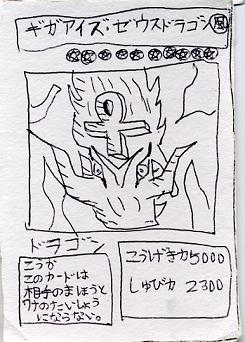 ギガアイズ・ゼウスドラゴン 風
ドラゴン
こうか
このカードは
相手のまほうと
ワナのたいしょう
にならない。
こうげき力5000
しゅび力 2300